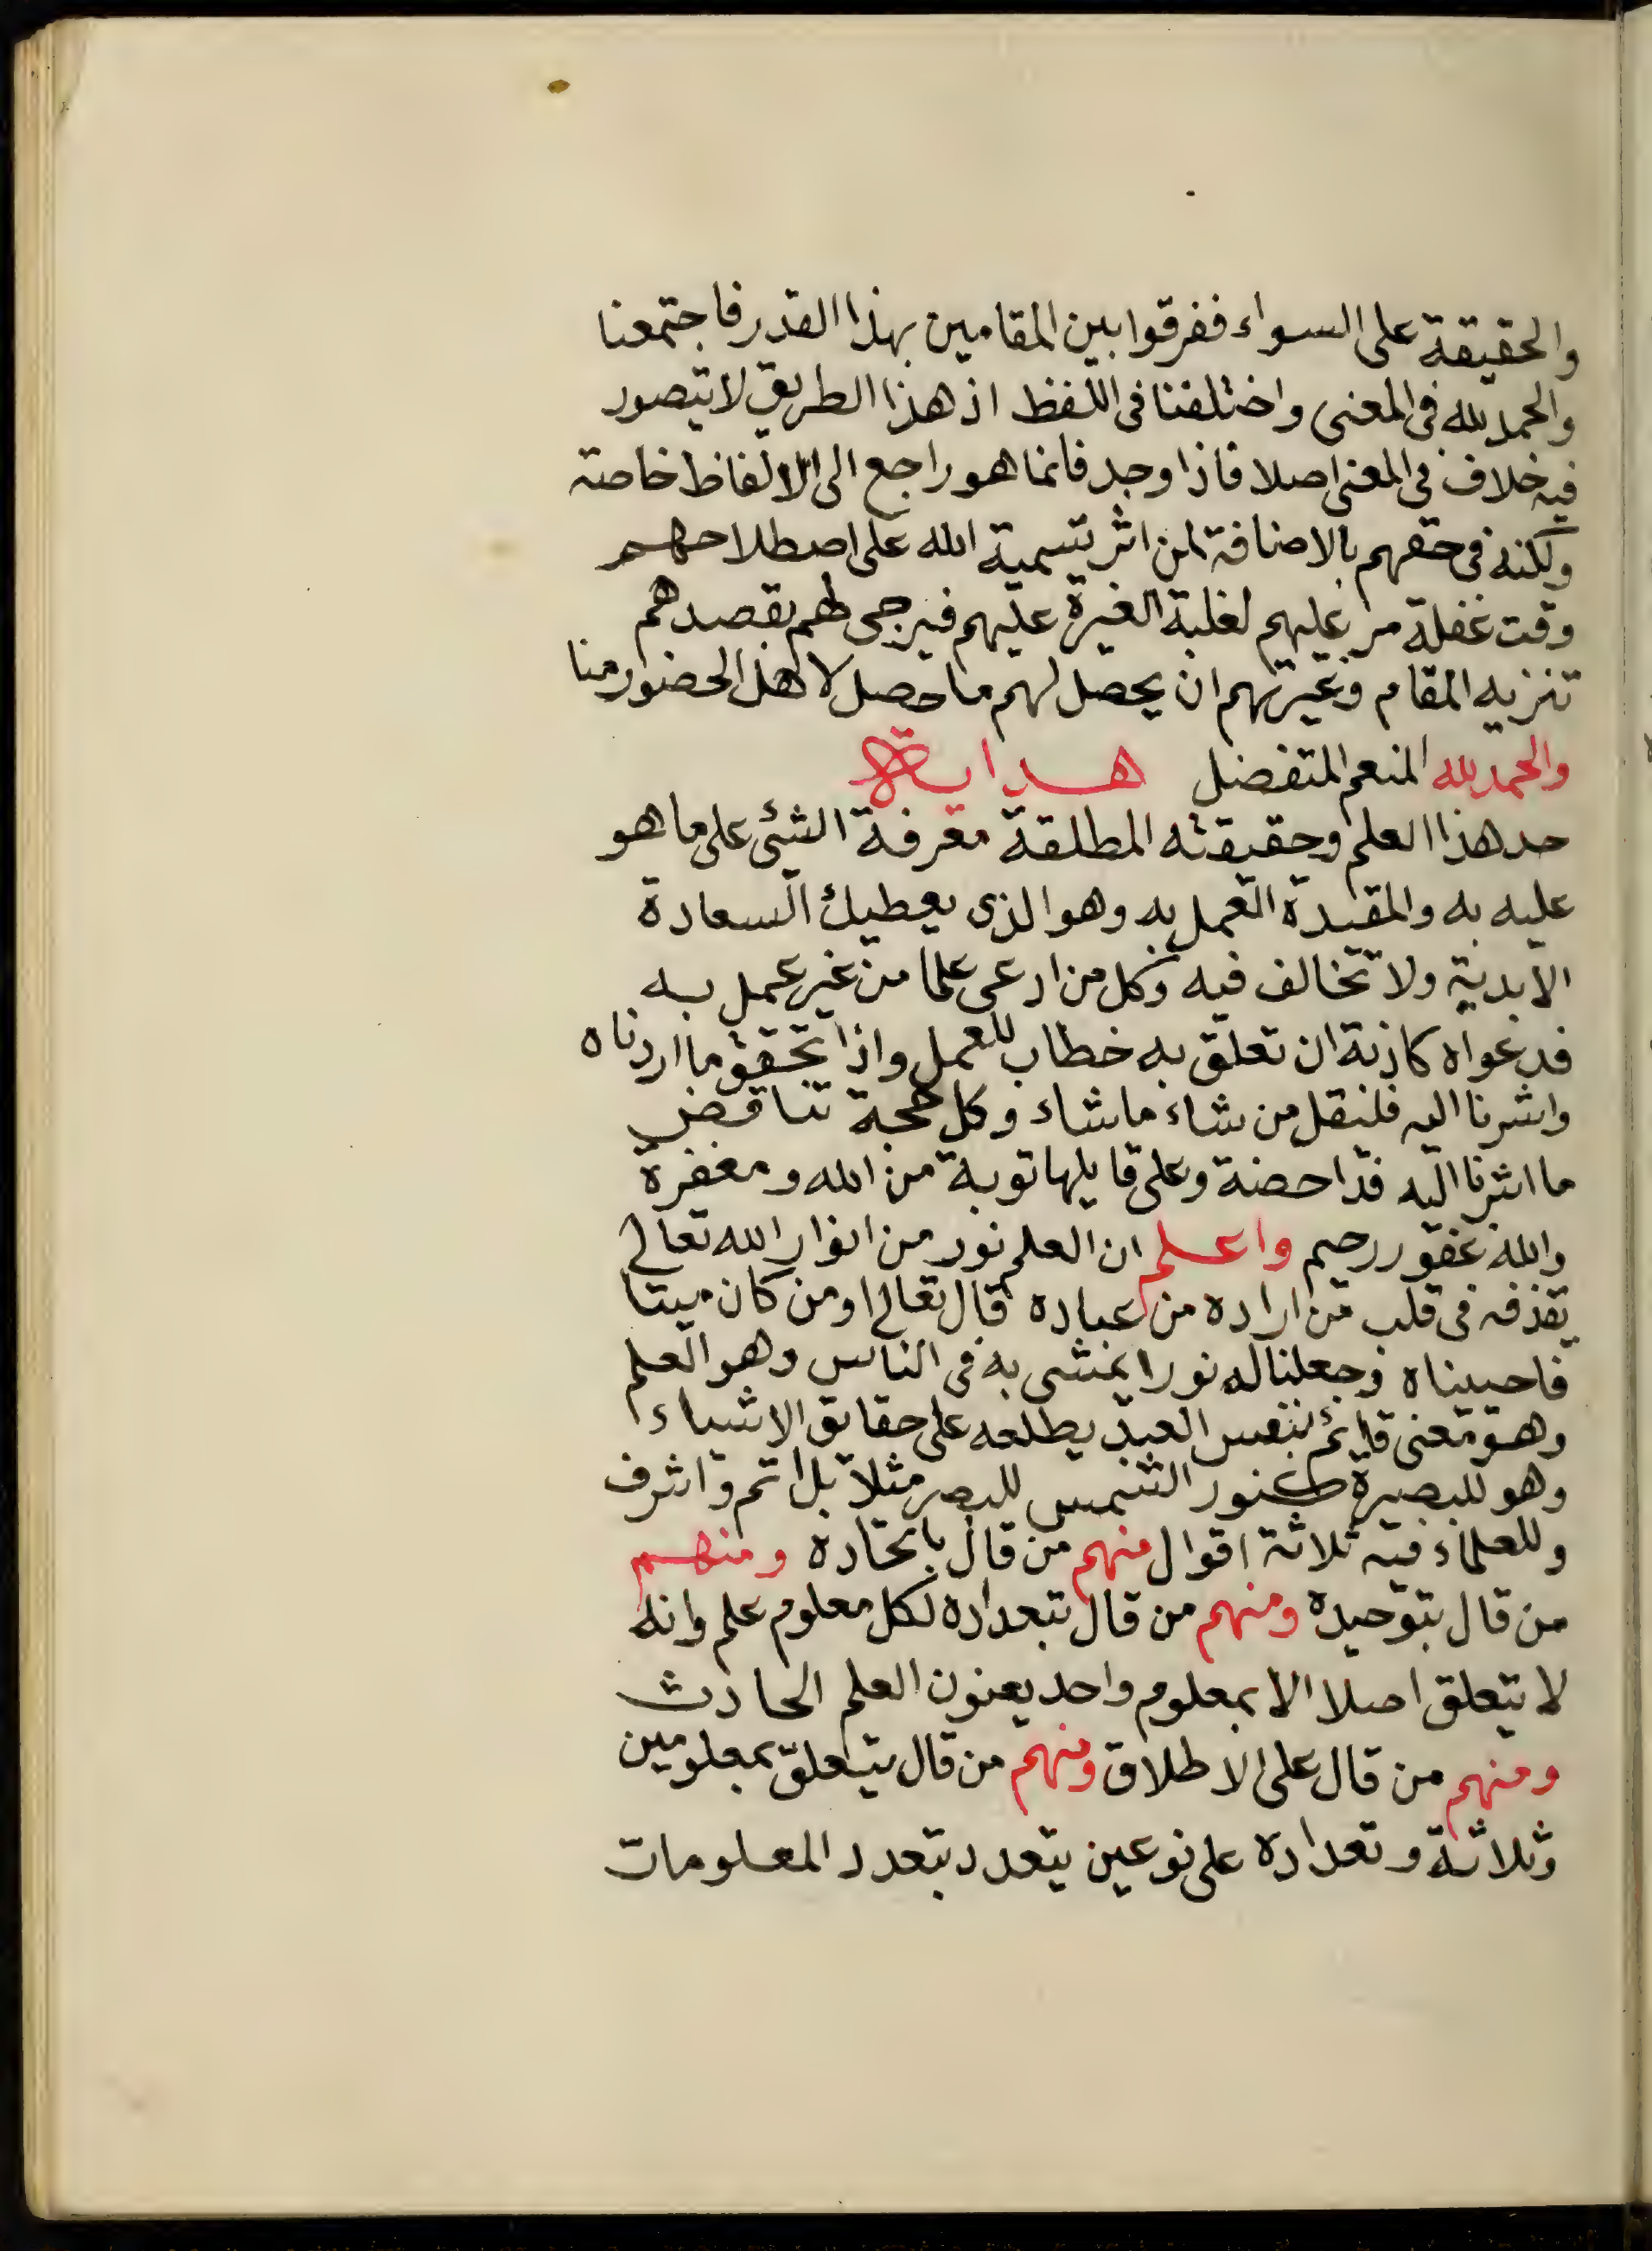 والحقيقة على السواء ففرقوا بين المقامين بهذا القدر فاجتمعنا
والحمد لله في المعنى واختلفنا في اللفظ اذ هذا الطريق لا يتصور
فيه خلاف في المعنى اصلا فاذا وجد فانما هو راجع الى الالفاظ خاصة
ولكنه في حقهم بالاضافة لمن اثر تسمية الله على اصطلاحهم
وقت غفلة مر عليهم لغلبة الغيرة عليهم فيرجى لهم بقصدهم
تنزيه المقام وغيرتهم ان يحصل لهم ما حصل لاهل الحضور منا
والحمد لله المنعم المتفضل هداية
حد هذا العلم وحقيقته المطلقة معرفة الشئ على ما هو
عليه به والمقيدة العمل به وهو الذي يعطيك السعادة
الابدية ولا تخالف فيه وكل من ادعى علما من غير عمل به
فدعواه كاذبة ان تعلق به خطاب للعمل واذا تحقق ما اردناه
واشرنا اليه فلنقل من شاء ما شاء وكل حجة تناقض
ما اشرنا اليه فداحضة وعلى قايلها توبة من الله ومغفرة
والله غفور رحيم واعلم ان العلم نور من انوار الله تعالى
يقذفه في قلب من اراده من عباده قال تعالى اومن كان ميتا
فاحييناه وجعلنا له نورا يمشي به في الناس وهو العلم
وهو معنى قايم بنفس العبد يطلعه على حقايق الاشياء
وهو للبصيرة كنور الشمس للبصر مثلا بل اتم واشرف
وللعلماء فيه ثلاثة اقوال منهم من قال باتحاده ومنهم
من قال بتوحيده ومنهم من قال بتعداده لكل معلوم علم وانه
لا يتعلق اصلا الا بمعلوم واحد يعنون العلم الحادث
ومنهم من قال على الاطلاق ومنهم من قال يتعلق بمعلومين
وثلاثة وتعداده على نوعين يتعدد بتعدد المعلومات